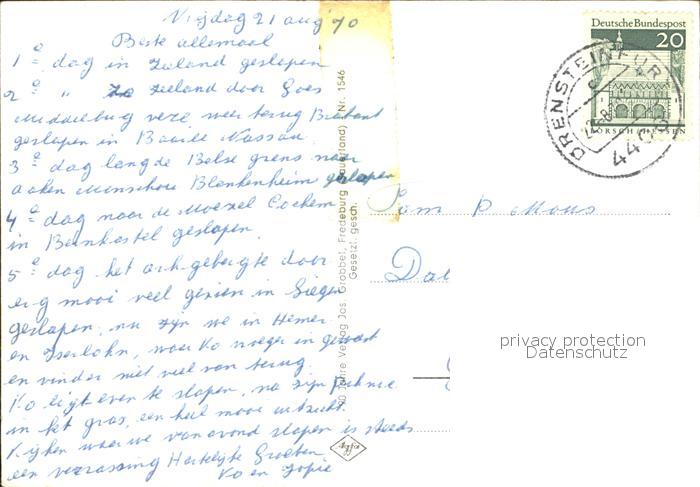 Vrijdag 21 aug 70
Beste allemaal
1e dag in Zeeland geslapen
2e " Zeeland door Goes
Middelburg veere weer terug Brabant
geslapen in Baarle Nassau.
3e dag langs de Belse grens naar
Aaken Monschau Blankenheim geslapen
4e dag naar de Moezel Cochem
in Bernkastel geslapen.
5e dag het gebergte door
erg mooi veel gezien in Siegen
geslapen, nu zijn we in Hemer
en Iserlohn, waar Ko vroeger in geweest
en vinden niet veel van terug.
Ko ligt even te slapen, na zijn
in het gras, een heel mooi uitzicht.
Kijken waar we vanavond slapen is steeds
een verrassing Hartelijke Groeten
Ko en Jopie
Nr. 1546
Jahre Verlag Jos. Grobbel, Fredeburg (Sauerland)
Gesetzl. gesch.
Agfa
Deutsche Bundespost
20
LORSCH/HESSEN
DRENSTEINFURT
4406
Fam P Mous
privacy protection
Datenschutz